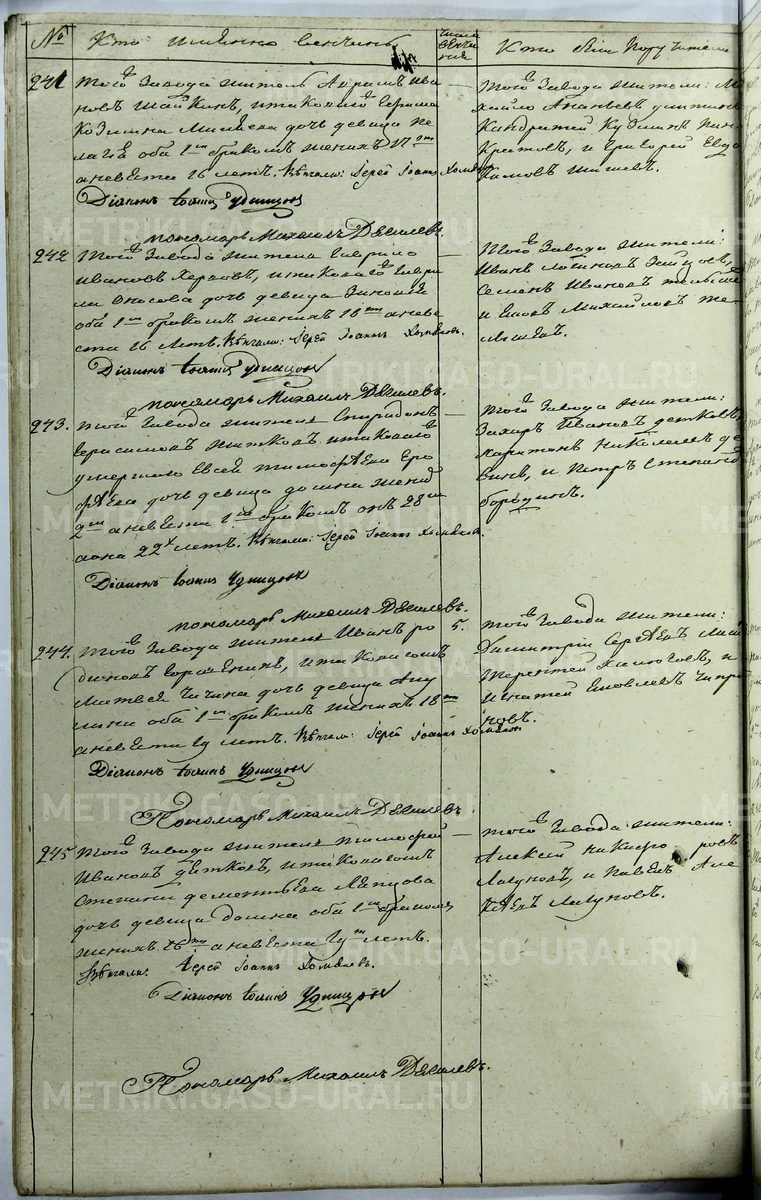 №
Кто именно венчаны
Числа венчания
Кто были поручители
241
того Завода житель Аврамъ Ива
новъ Шайкинъ, и таковаго
Козмина дочь девица Пе
лагея оба 1мъ бракомъ жених 17
а невеста 16 летъ. Венчали: Іерей Іоаннъ Хомяковъ
Діаконъ Іоаннъ Удинцовъ
пономарь Михаилъ Дягилевъ.
—
того Завода жители: Ми
хайло Ананьевъ
Кандратей Кузминъ Пан
кратовъ, и Григорей Евда
кимовъ Шишевъ.
242
того Завода житель Гаврило
Ивановъ и таковаго Гаври
ла дочь девица Зиновия
оба 1мъ бракомъ жених 18 а неве
ста 16 летъ. Венчали: Іерей Іоаннъ Хомяковъ.
Діаконъ Іоаннъ Удинцовъ
пономарь Михаилъ Дягилевъ.
—
того Завода жители:
Иванъ Зайцовъ,
Семенъ Ивановъ
и Яковъ Михайловъ
243.
того Завода житель Спиридонъ
Герасимовъ Житковъ и таковаго
умершаго Евсея Тимофеева Еро
феева дочь девица Домна жених
2мъ а невеста 1мъ бракомъ онъ 28
а она 22хъ летъ. Венчали: Іерей Іоаннъ Хомяковъ.
Діаконъ Іоаннъ Удинцовъ
пономарь Михаилъ Дягилевъ.
—
того Завода жители:
Захаръ Ивановъ Детковъ,
Харитонъ Николаевъ Де
и Петръ Степановъ
Бородинъ.
244.
того Завода житель Иванъ Ро
дионовъ и таковаго
Матвея Чичина дочь девица Аку
лина оба 1мъ бракомъ жених 18
а невеста 19 летъ. Венчали: Іерей Іоаннъ Хомяковъ
Діаконъ Іоаннъ Удинцовъ
Пономарь Михаилъ Дягилевъ
5.
того Завода жители:
Димитрій Сергеевъ
Терентей Калюговъ, и
Игнатей Яковлевъ Чапри
новъ.
245
того Завода житель Тимофей
Ивановъ Детковъ, и таковаго
Степана Дементьева Ляпцова
дочь девица Домна оба 1мъ бракомъ
жених 26 а невеста 19 летъ.
Венчали: Іерей Іоаннъ Хомяковъ.
Діаконъ Іоаннъ Удинцовъ
Пономарь Михаилъ Дягилевъ.
—
того Завода жители:
Алексей Никифоровъ
Лагуновъ, и Павелъ Але
ксеевъ Лагуновъ.
METRIKI.GASO-URAL.RU